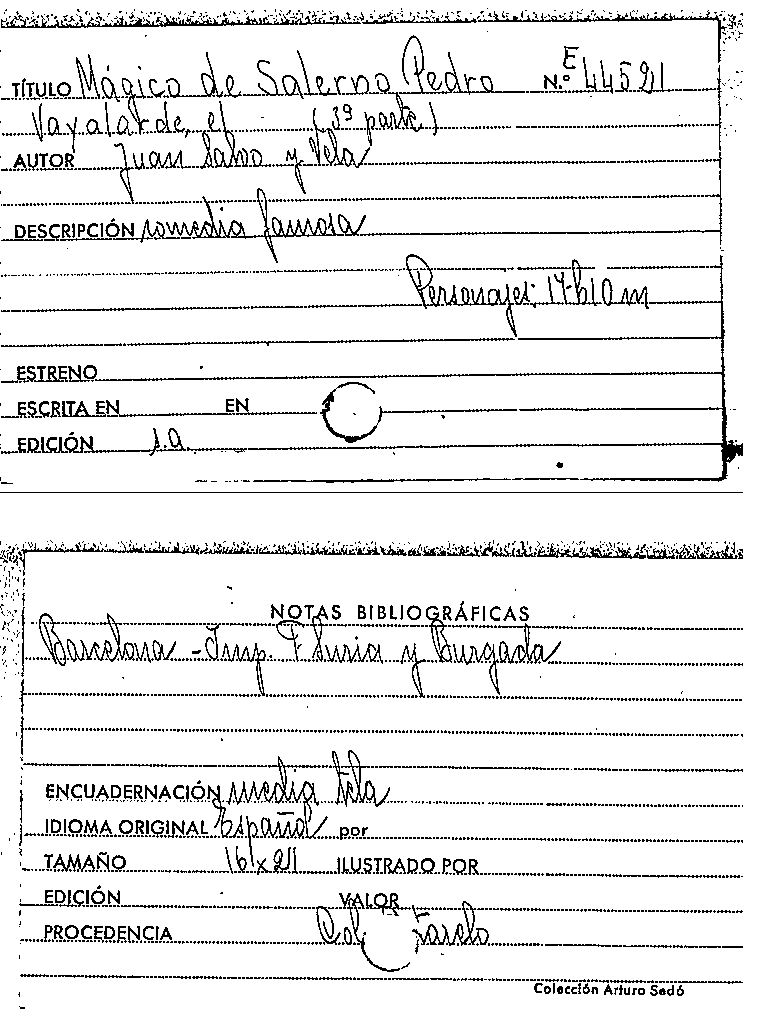 TÍTULO Mágico de Salerno Pedro N.º E 44521
Vayalarde, el (3ª parte)
AUTOR Juan Salvo y Vela
DESCRIPCIÓN comedia famosa
Personajes: 17-h 10 m
ESTRENO
ESCRITA EN EN
EDICIÓN s.a.
NOTAS BIBLIOGRÁFICAS
Barcelona - Imp. Suria y Burgada
ENCUADERNACIÓN media tela
IDIOMA ORIGINAL Español por
TAMAÑO 16x21 ILUSTRADO POR
EDICIÓN VALOR
PROCEDENCIA Col.
Colección Arturo Sedó